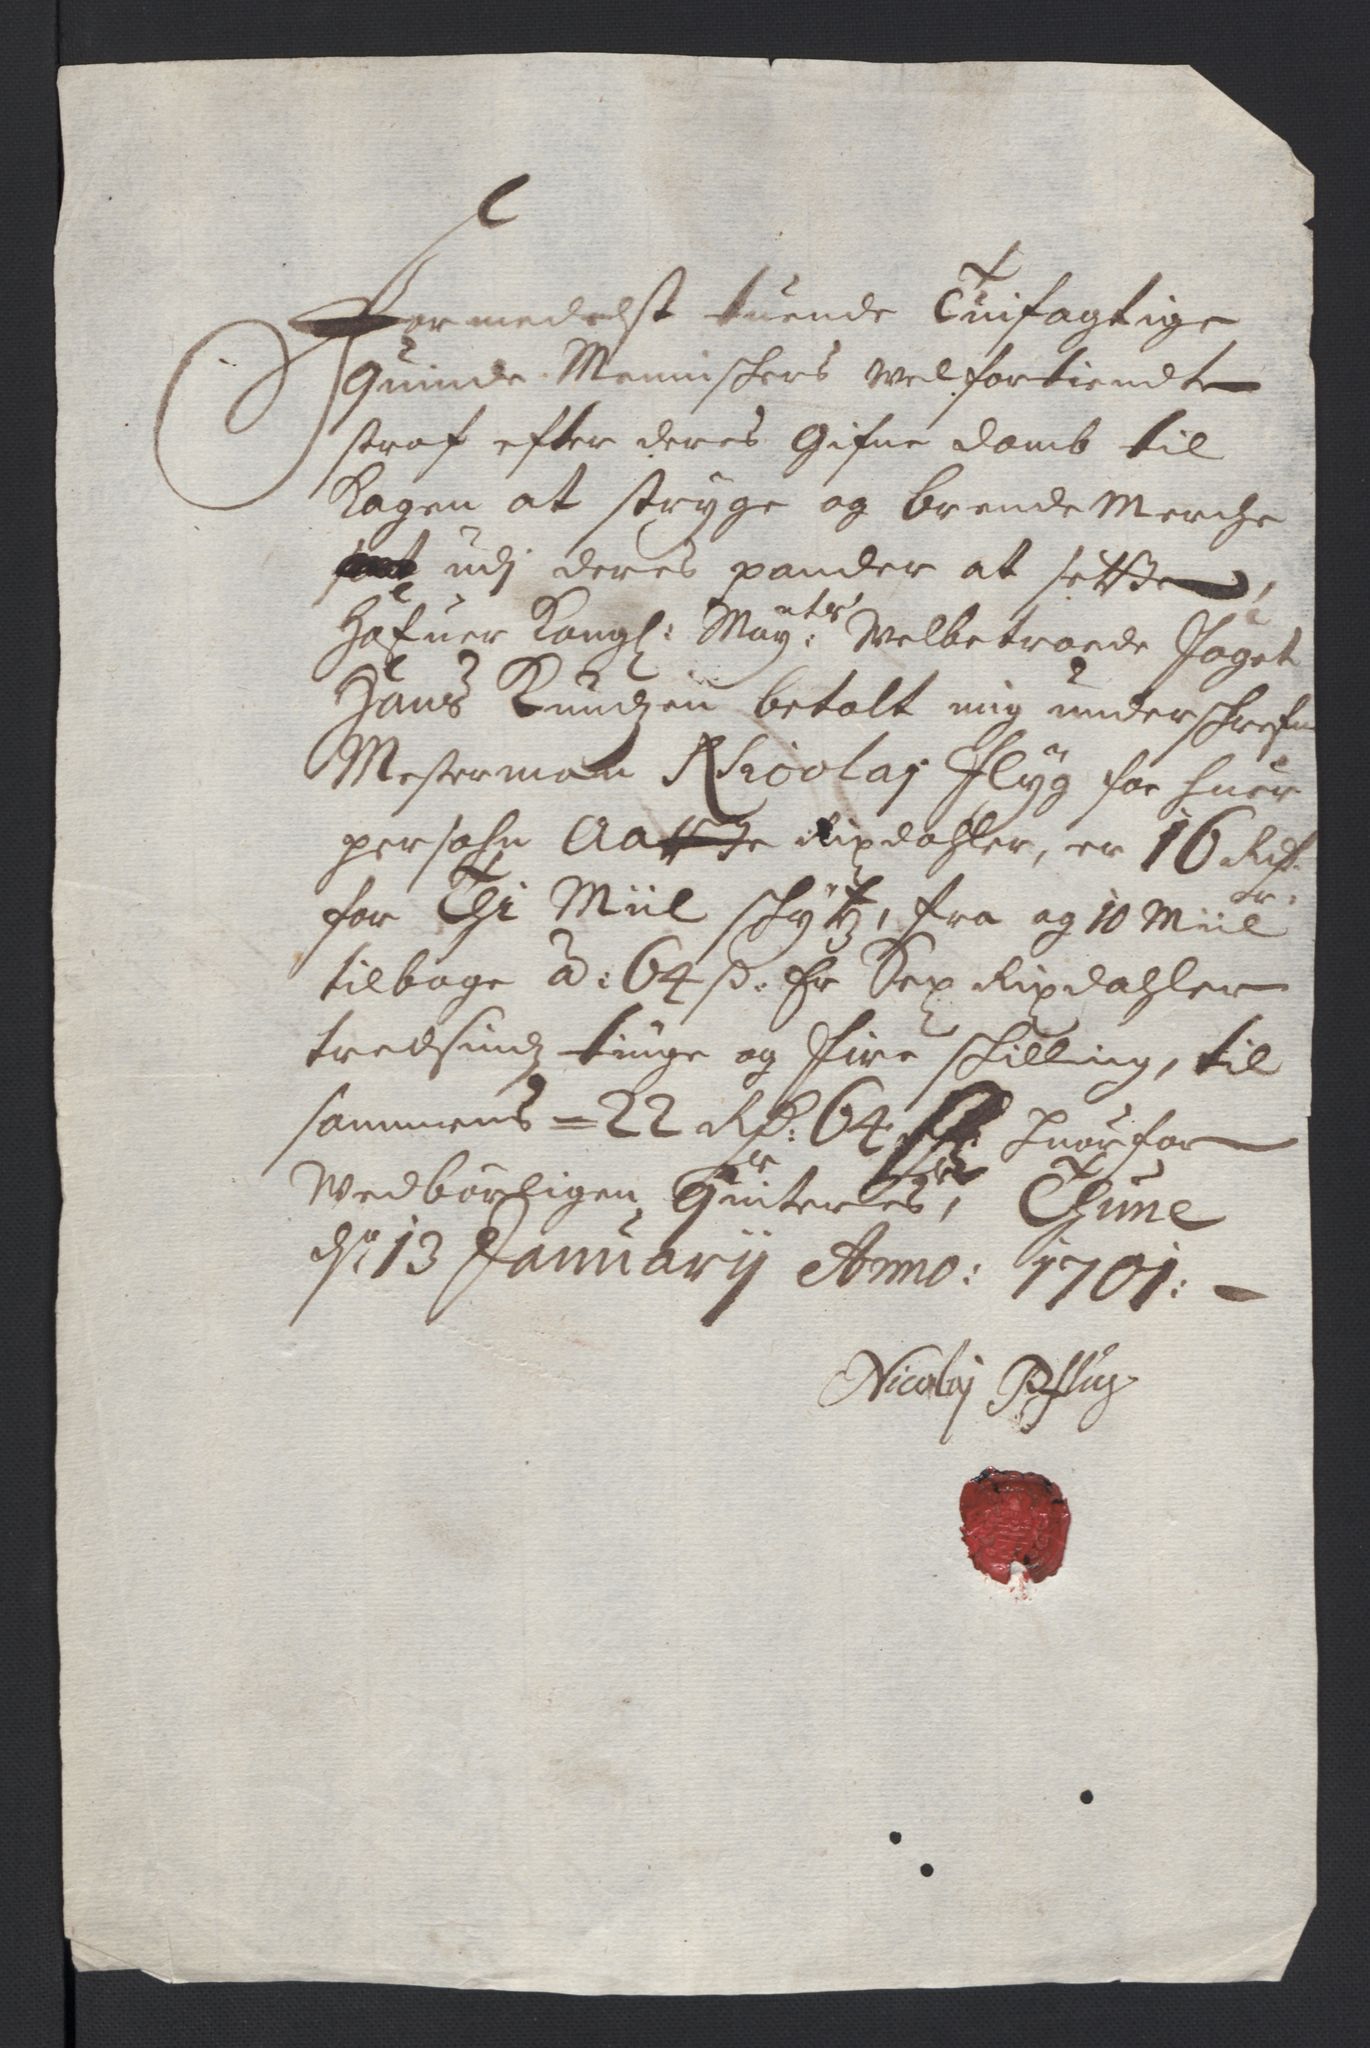 Formedelst tuende Tuifagtige
Quinde Menischers Welfortiendte
straf efter deres Gifne domb til
Kagen at stryge og brende Merche
udj deres pander at sette,
Hafuer Kongl: May:ntzs Welbetroede Foget
Hans Knudzen betalt mig underschrefne
Mesterman Nicolaj Flyg for huer
persohn Aatte Rixdahler, er 16 Rdr.
for Thi Miil schytz, fra og 10 Miil
tilbage â: 64 s. er Sex Rixdahler
tredsindz tiuge og fire schilling, til
sammens = 22 Rdr: 64 huorfor
Wedbörligen Quiteres, Thune
dn 13 Januarij Anno: 1701: -
Nicolaj Pflug